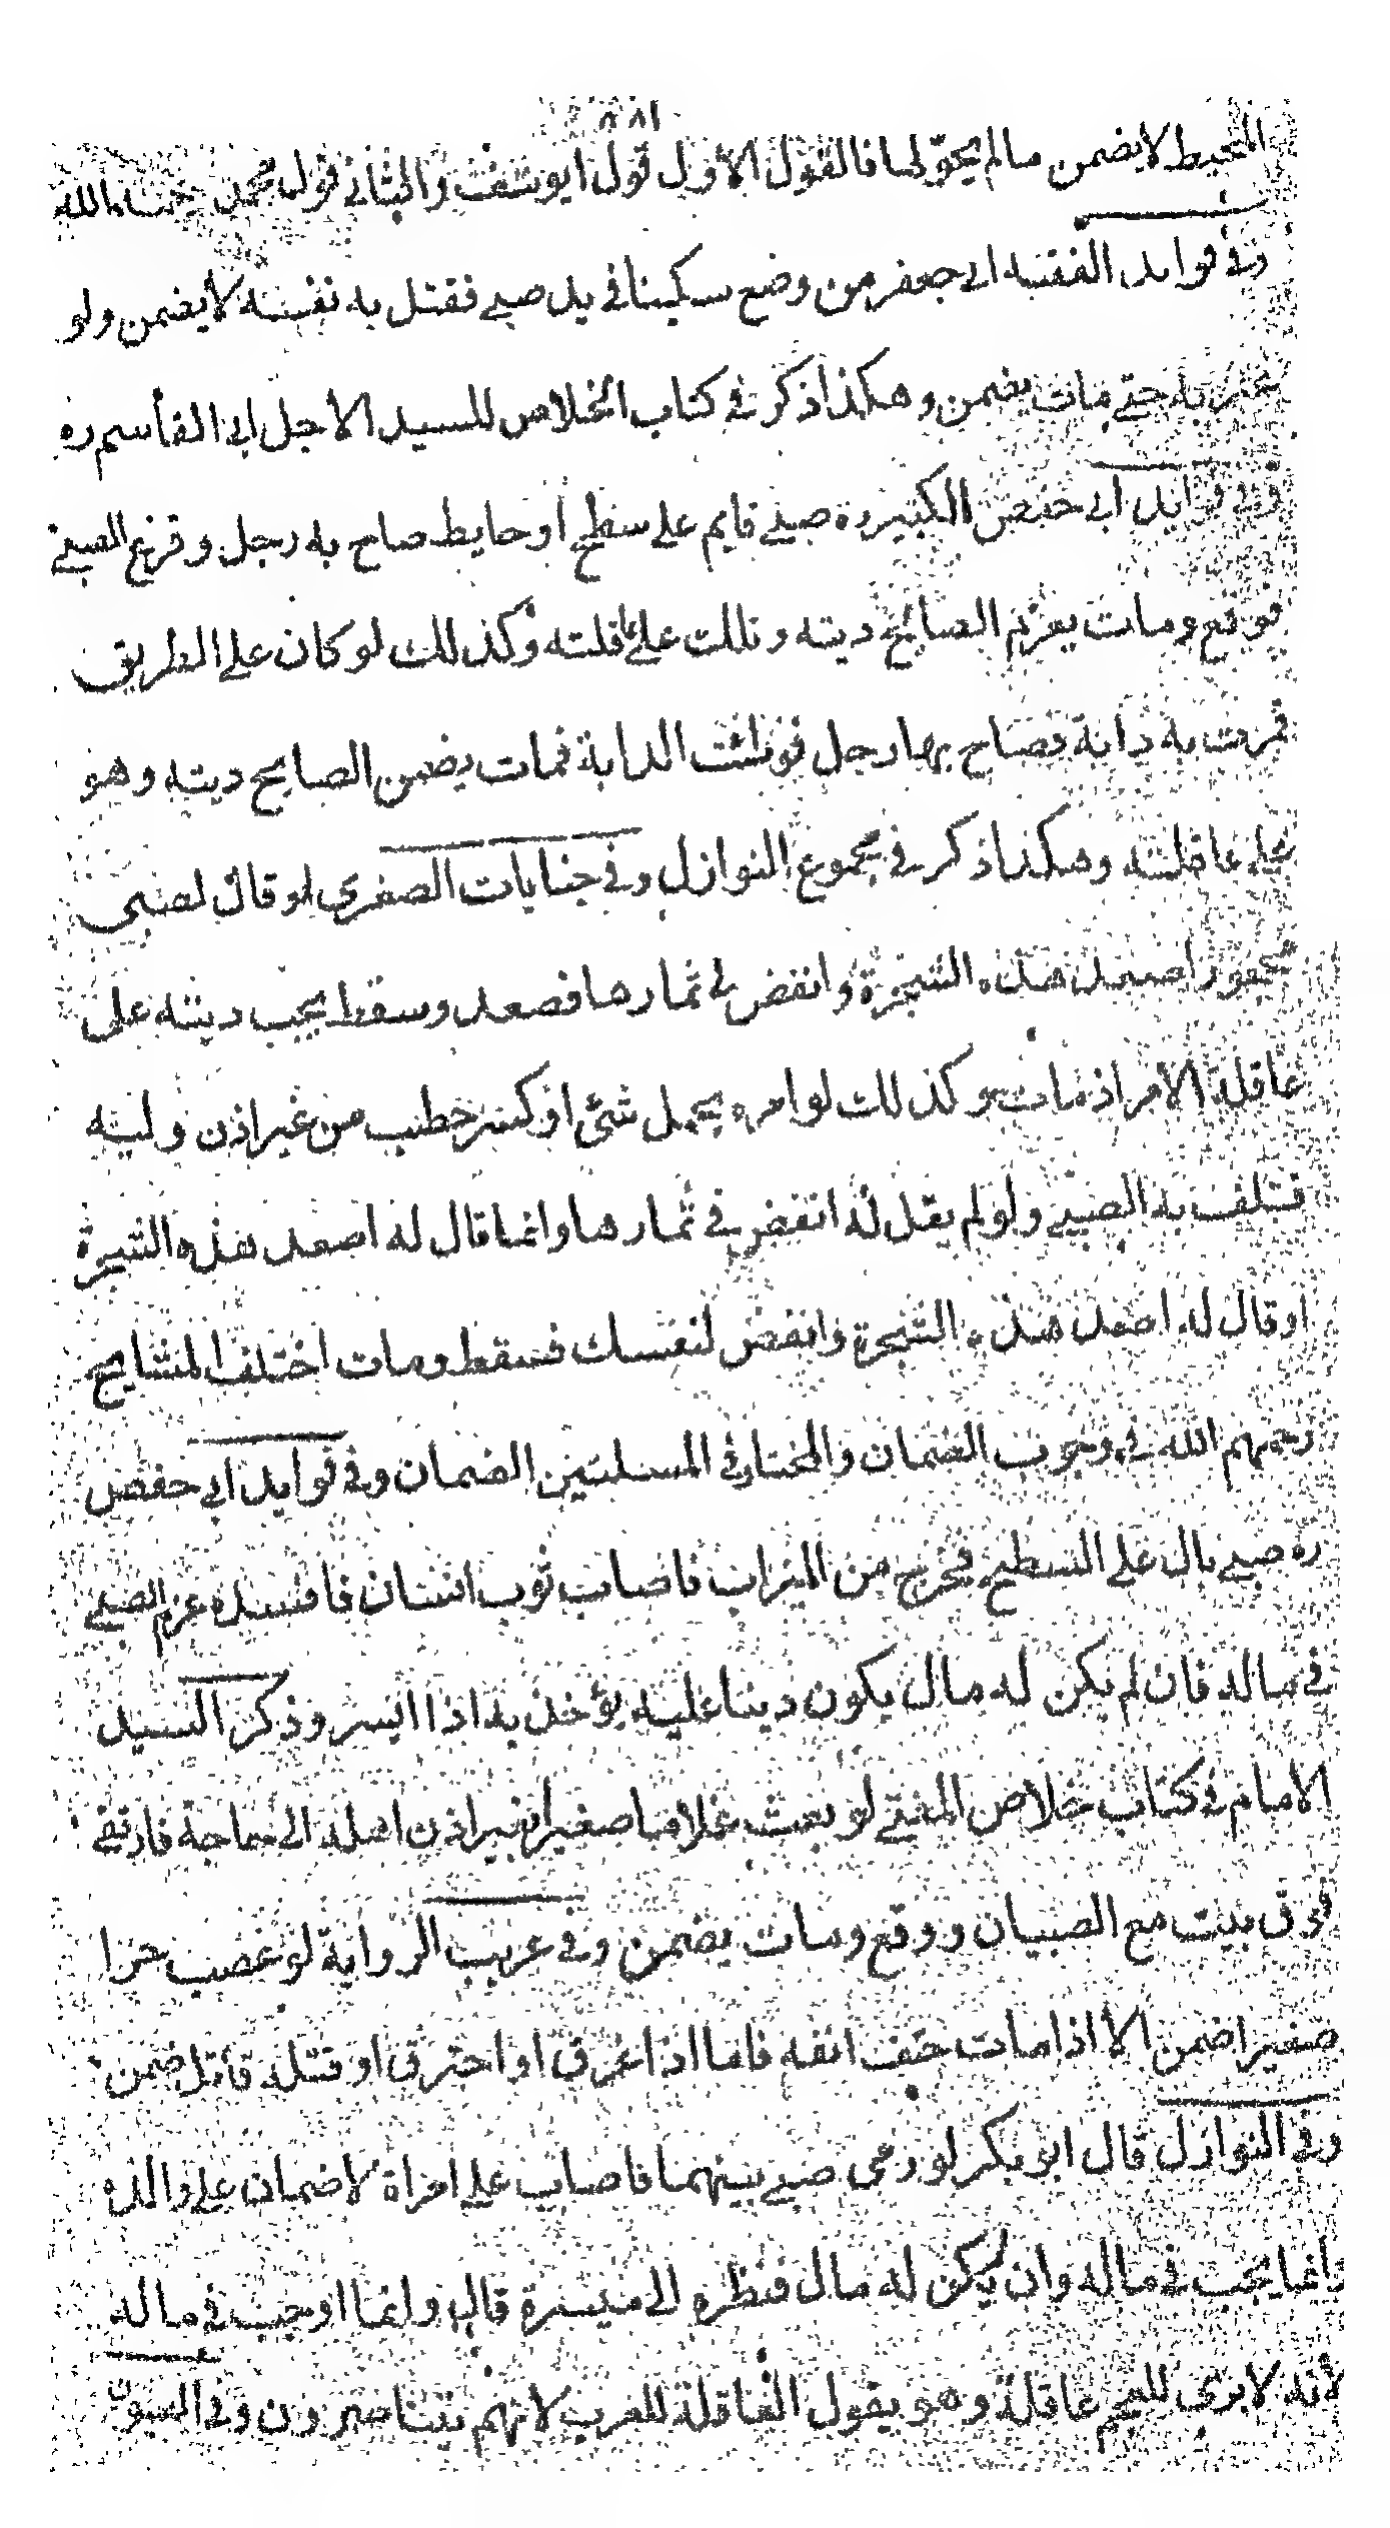 المحيط لا يضمن ما لم يحولها فالقول الاول قول ابو يوسف والثاني قول محمد رحمه الله
وفي فوايد الفقيه ابي جعفر من وضع سكينا في يد صبي فقتل به نفسه لا يضمن ولو
عثر به حتي مات يضمن وهكذا ذكر في كتاب الخلاص للسيد الاجل ابي القاسم ره
وفي فوايد ابي حفص الكبير ره صبي قايم علي سطح او حايط صاح به رجل وفزع الصبي
فوقع ومات يغرم الصايح ديته وتلك علي عاقلته وكذلك لو كان علي الطريق
فمرت به دابة فصاح بها رجل فوطئت الدابة فمات يضمن الصايح ديته وهو
علي عاقلته وهكذا ذكر في مجموع النوازل وفي جنايات الصغرى لو قال لصبى
محجور اصعد هذه الشجرة وانفض لي ثمارها فصعد وسقط يجب ديته على
عاقلة الامر اذ مات وكذلك لو امره بحمل شئ او كسر حطب من غير اذن وليه
فتلف به الصبي ولو لم يقل له انفض لي ثمارها وانما قال له اصعد هذه الشجرة
او قال له اصعد هذه الشجرة وانفض لنفسك فسقط ومات اختلف المشايخ
رحمهم الله في وجوب الضمان والمختار في المسلتين الضمان وفي فوايد ابي حفص
ره صبي بال علي السطح فخرج من الميزاب فاصاب ثوب انسان فافسده غرم الصبي
في ماله فان لم يكن له مال يكون دينا عليه يؤخذ به اذا ايسر وذكر السيد
الامام في كتاب خلاص المفتي لو بعث غلاما صغيرا بغير اذن اهله الي حاجة فارتقي
فوق بيت مع الصبيان ووقع ومات يضمن وفي غريب الرواية لو غصب حرا
صغيرا ضمن الا اذا مات حتف انفه فاما اذا غرق او احترق او قتله قاتل ضمن
وفي النوازل قال ابو بكر لو رمى صبي سهما فاصاب علي امراة لا ضمان علي والده
وانما يجب في ماله وان لم يكن له مال فنظرة الي ميسرة قال وانما اوجب في ماله
لانه لا يرى للعجم عاقلة وهو يقول العاقلة للعرب لانهم يتناصرون وفي العيون